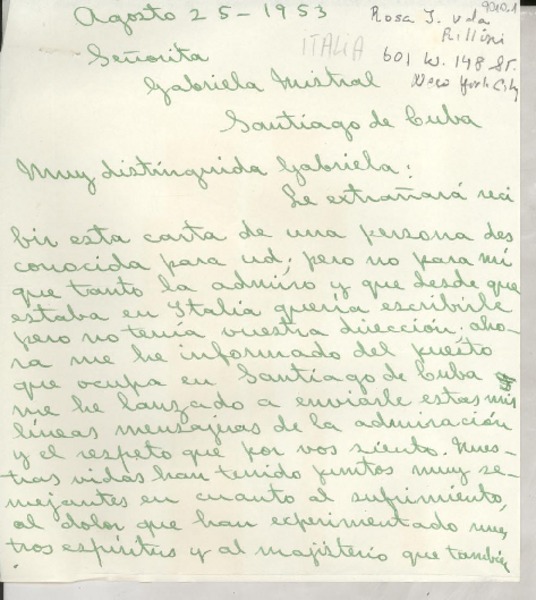 9010.1
Agosto 25 - 1953
Rosa J. vda
Rillini
601 W. 148 St.
New York City
ITALIA
Señorita
Gabriela Mistral
Santiago de Cuba
Muy distinguida Gabriela:
Le extrañará reci
bir esta carta de una persona des
conocida para ud; pero no para mí
que tanto la admiro y que desde que
estaba en Italia quería escribirle
pero no tenía vuestra dirección; aho-
ra me he informado del puesto
que ocupa en Santiago de Cuba y
me he lanzado a enviarle estas mis
líneas mensajeras de la admiración
y el respeto que por vos siento. Nues-
tras vidas han tenido puntos muy se-
mejantes en cuanto al sufrimiento,
al dolor que han experimentado nues
tros espíritus y al majisterio que tambié